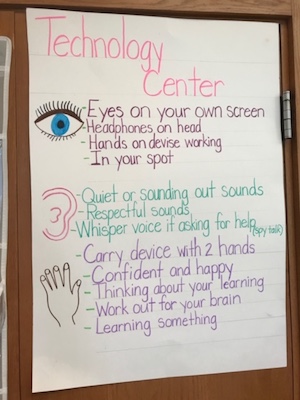 Technology
Center
-Eyes on your own screen
-Headphones on head
-Hands on devise working
-In your spot
-Quiet or sounding out sounds
-Respectful sounds
-Whisper voice if asking for help (spy talk)
-Carry device with 2 hands
-Confident and happy
-Thinking about your learning
-Work out for your brain
-Learning something